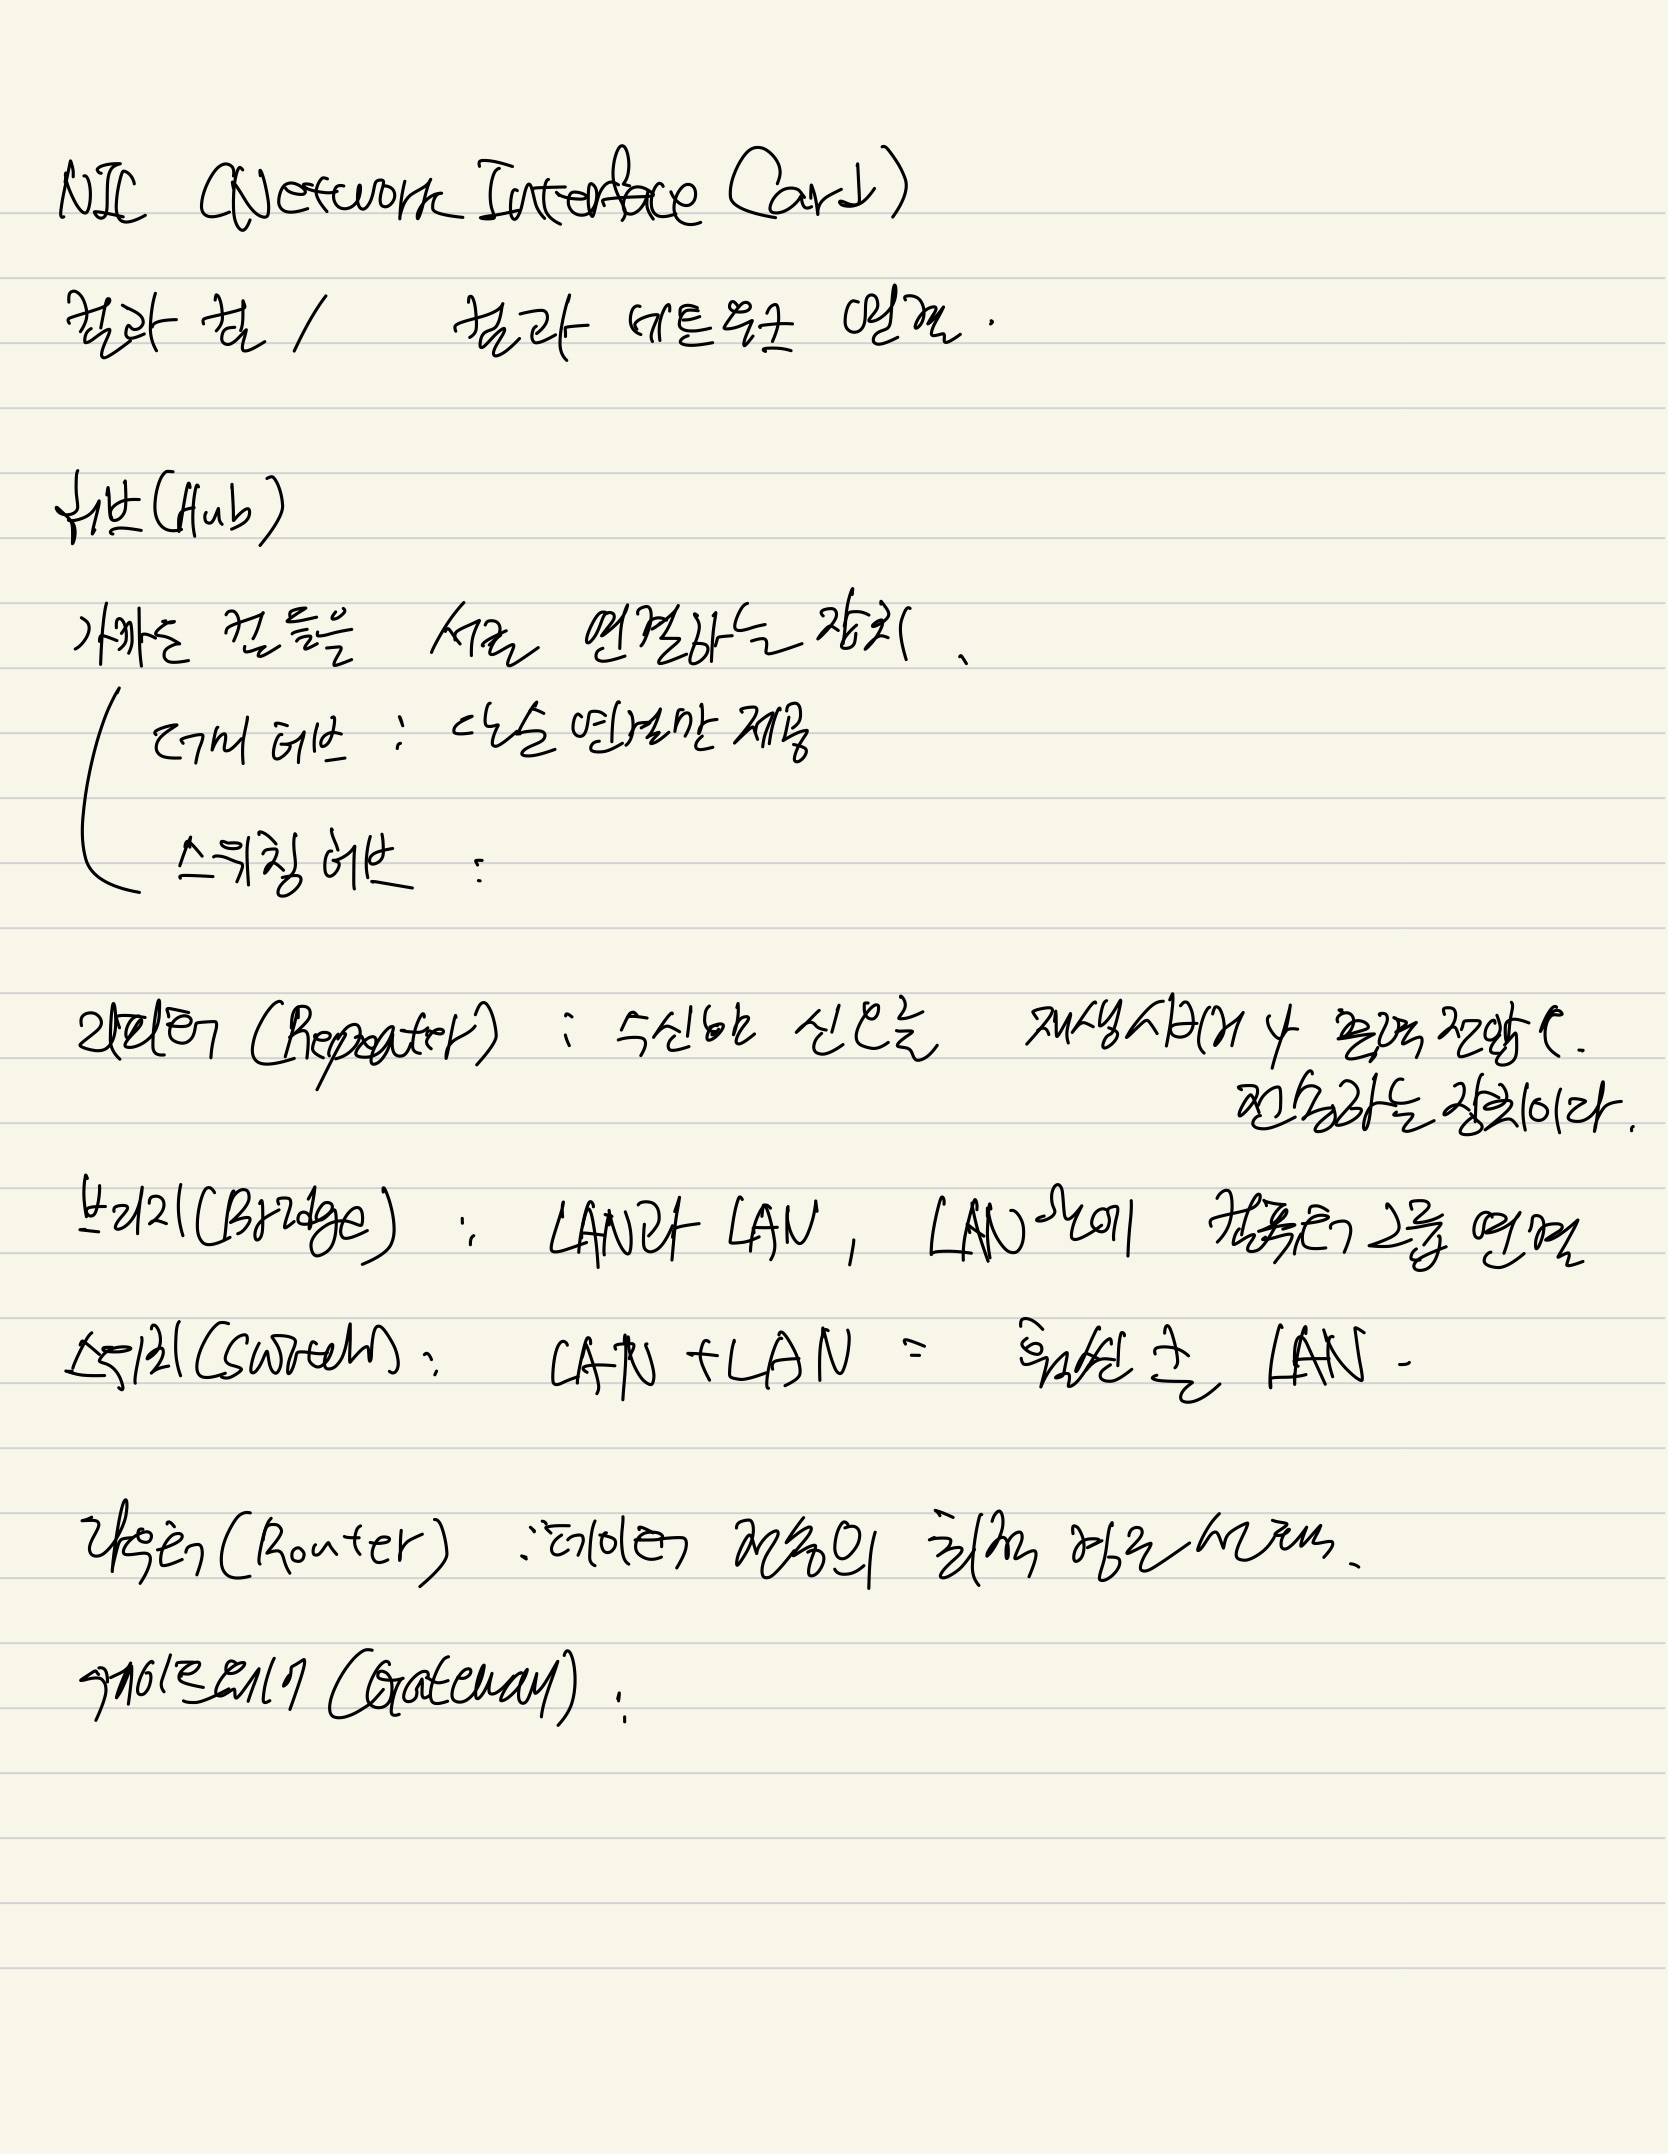 NIC (Network Interface Card)
컴과 컴 / 컴과 네트워크 연결.
허브(Hub)
가까운 컴들을 서로 연결하는 장치.
더미 허브 : 단순 연결만 제공
스위칭 허브 :
리피터 (Repeater) : 수신한 신호를 재생시키거나 출력전압
전송하는 장치이다.
브리지(Bridge) : LAN과 LAN, LAN 컴퓨터 그룹 연결
스위치(Switch) : LAN + LAN = 훨씬 큰 LAN.
라우터(Router) : 데이터 전송의 최적 경로 선택.
게이트웨이 (Gateway) :